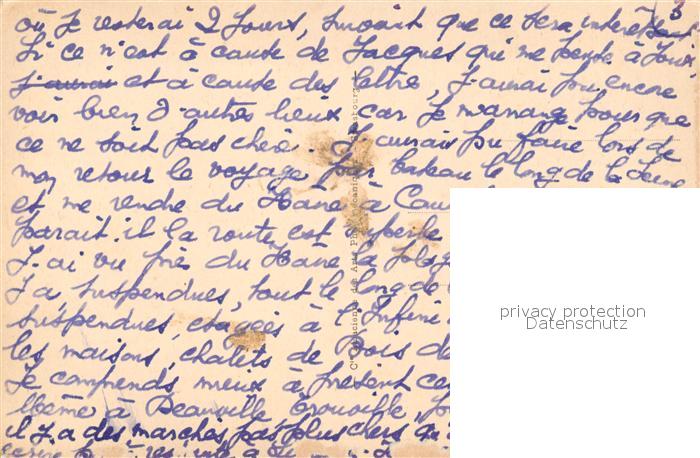 5
où je resterai 2 jours, suivant que ce sera intéres
Si ce n'est à cause de Jacques qui me pense à
j'aurai et à cause des lettre, j'aurai pu encore
voir bien d'autres lieux car je m'arrange pour que
ce ne soit pas cher. J'aurais pu faire lors de
mon retour le voyage par bateau le long de la Seine
et me rendre du Havre à
parait il la route est superbe
J'ai vu près du Havre la plag
suspendues, tout le long de
suspendues, etagés à l'infini
les maisons, chalets de Bois de
Je comprends mieux à présent ce
Même à Deauville Trouville,
il y a des marches pas plus chers qu
Cie Alsacienne des Arts Photomécaniques Strasbourg
privacy protection
Datenschutz